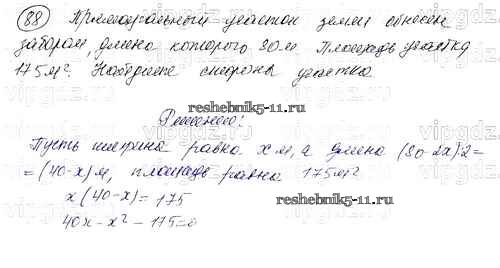 88 Прямоугольный участок земли обнесен
забором, длина которого 80 м. Площадь участка
175 м². Найдите стороны участка
reshebnik5-11.ru
Решение:
Пусть ширина равна x м, а длина (80-2x):2=
=(40-x) м, площадь равна 175 м²
x(40-x)=175
reshebnik5-11.ru
40x-x²-175=0